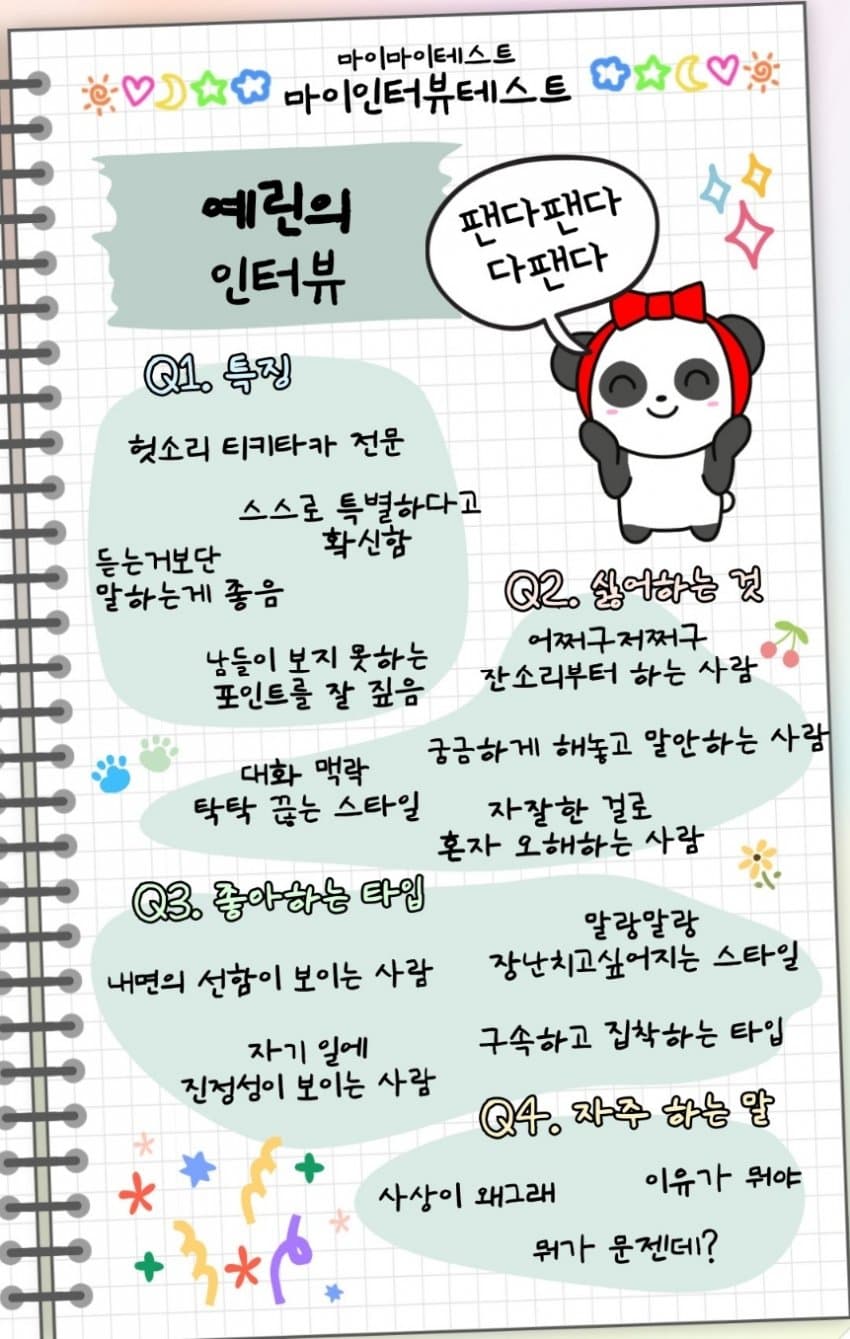 마이마이테스트
마이인터뷰테스트
예린의
인터뷰
팬다팬다
다팬다
Q1. 특징
헛소리 티키타카 전문
스스로 특별하다고
확신함
듣는거보단
말하는게 좋음
남들이 보지 못하는
포인트를 잘 짚음
Q2. 싫어하는 것
어쩌구저쩌구
잔소리부터 하는 사람
궁금하게 해놓고 말안하는 사람
대화 맥락
탁탁 끊는 스타일
자잘한 걸로
혼자 오해하는 사람
Q3. 좋아하는 타입
말랑말랑
장난치고싶어지는 스타일
내면의 선함이 보이는 사람
구속하고 집착하는 타입
자기 일에
진정성이 보이는 사람
Q4. 자주 하는 말
사상이 왜그래
이유가 뭐야
뭐가 문젠데!?